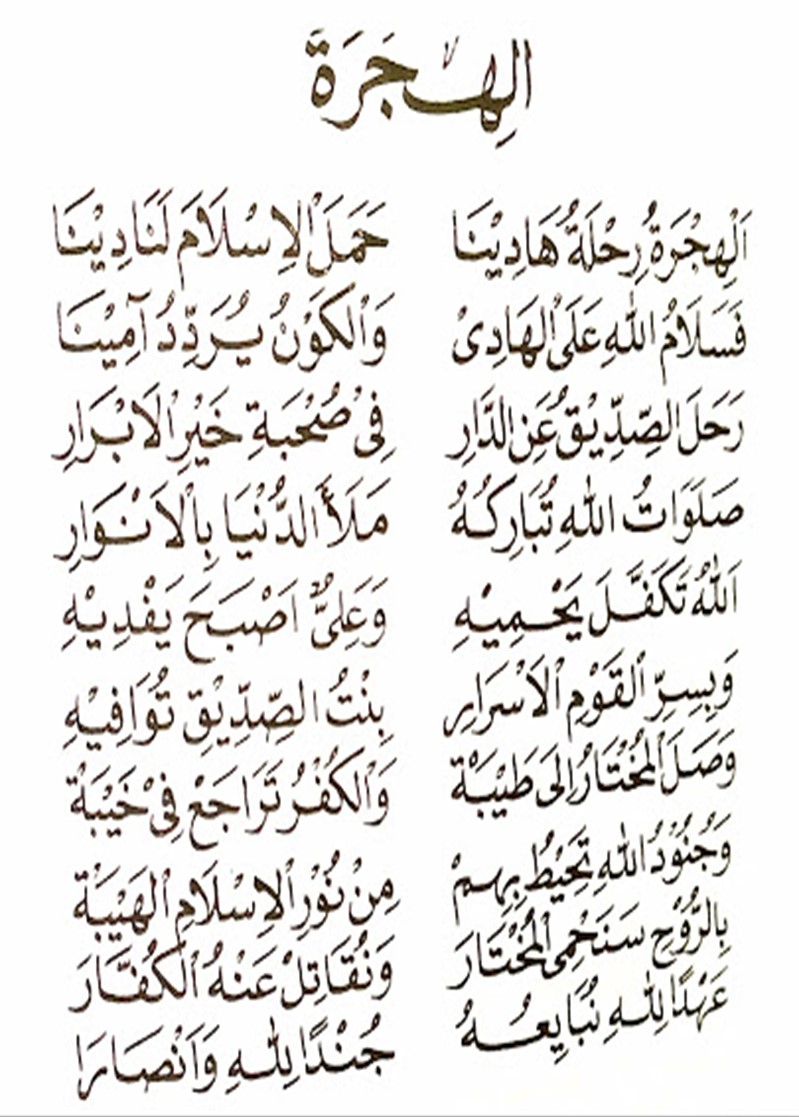 الهِجَرَةَ
اَلْهِجْرَةُ رِحْلَةُ هَادِيْنَا حَمَلَ الْاِسْلَامَ لَنَا دِيْنَا
فَسَلَامُ اللهِ عَلَى الْهَادِىْ وَالْكَوْنُ يُرَدِّدُ آمِيْنَا
رَحَلَ الصِّدِّيْقُ عَنِ الدَّارِ فِىْ صُحْبَةِ خَيْرِ الْاَبْرَارِ
صَلَوَاتُ اللهِ تُبَارِكُهُ مَلَأَ الدُّنْيَا بِالْاَنْوَارِ
اَللهُ تَكَفَّلَ يَحْمِيْهِ وَعَلِىٌّ اَصْبَحَ يَفْدِيْهِ
وَبِسِرِّ الْقَوْمِ الْاَسْرَارِ بِنْتُ الصِّدِّيْقِ تُوَافِيْهِ
وَصَلَ الْمُخْتَارُ اِلَى طَيْبَةْ وَالْكُفْرُ تَرَاجَعْ فِىْ خَيْبَةْ
وَجُنُوْدُ اللهِ تُحِيْطُ بِهِمْ مِنْ نُوْرِ الْاِسْلَامِ الْهَيْبَةْ
بِالرُّوْحِ سَنَحْمِى الْمُخْتَارَ وَنُقَاتِلْ عَنْهُ الْكُفَّارَ
عَهْدًا لِلّٰهِ نُبَايِعُهُ جُنْدًا لِلّٰهِ وَاَنْصَارَا